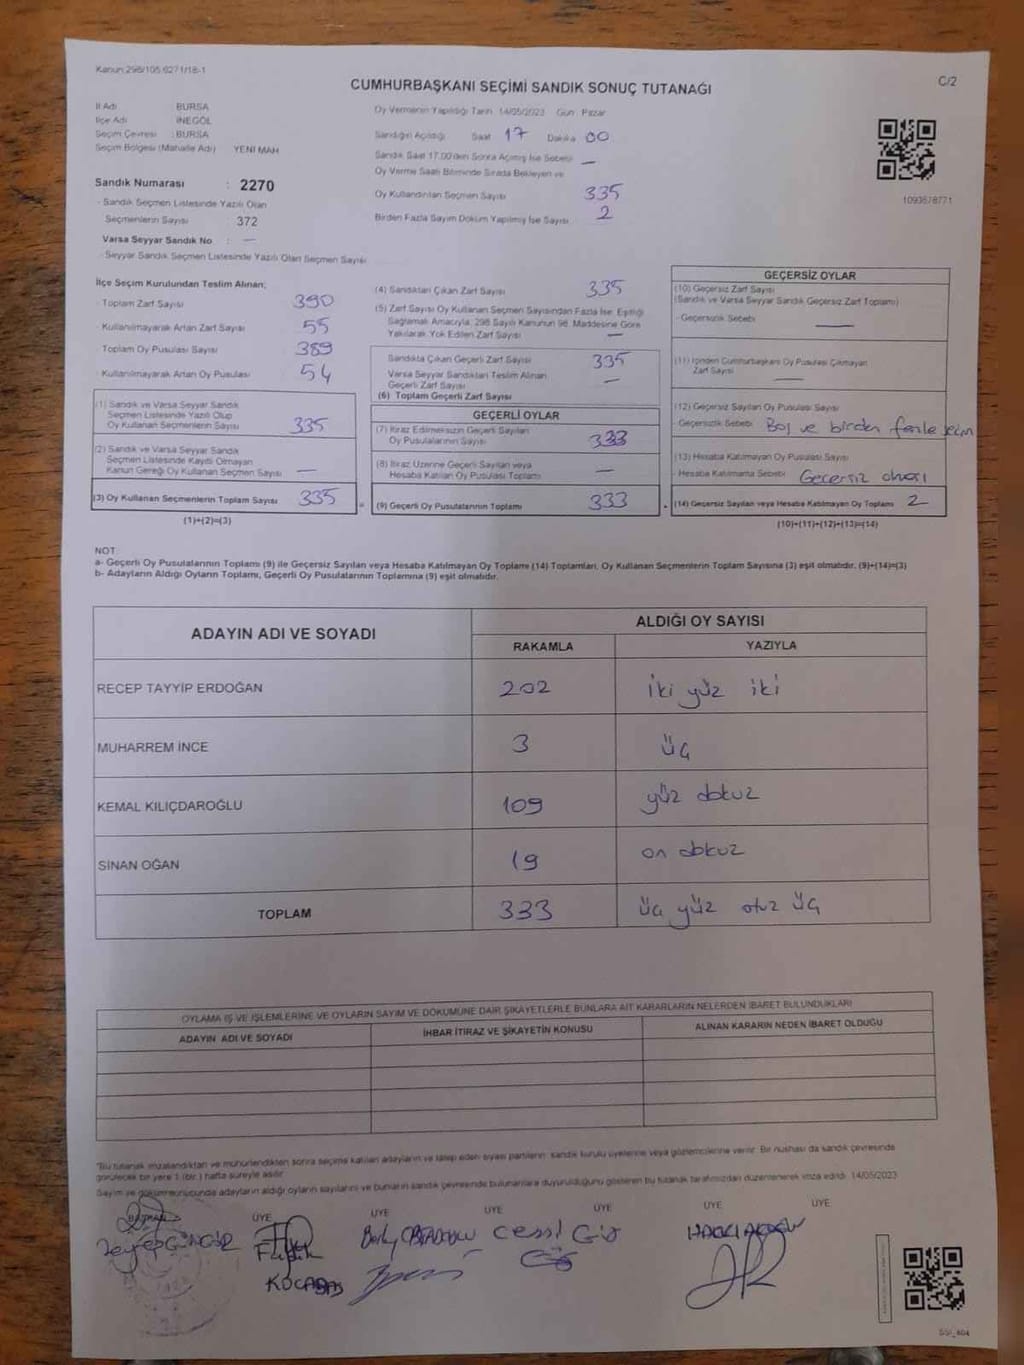 Kanun:298/105,6271/18-1
C/2
CUMHURBAŞKANI SEÇİMİ SANDIK SONUÇ TUTANAĞI
İl Adı : BURSA
İlçe Adı : İNEGÖL
Seçim Çevresi : BURSA
Seçim Bölgesi (Mahalle Adı) YENİ MAH
Sandık Numarası : 2270
- Sandık Seçmen Listesinde Yazılı Olan
Seçmenlerin Sayısı : 372
Varsa Seyyar Sandık No : —
- Seyyar Sandık Seçmen Listesinde Yazılı Olan Seçmen Sayısı
Oy Vermenin Yapıldığı Tarih: 14/05/2023 Gün: Pazar
Sandığın Açıldığı Saat 17 Dakika 00
Sandık Saat 17.00'den Sonra Açılmış İse Sebebi —
Oy Verme Saati Bitiminde Sırada Bekleyen ve
Oy Kullandırılan Seçmen Sayısı 335
Birden Fazla Sayım Döküm Yapılmış İse Sayısı 2
1093678771
İlçe Seçim Kurulundan Teslim Alınan;
- Toplam Zarf Sayısı 390
- Kullanılmayarak Artan Zarf Sayısı 55
- Toplam Oy Pusulası Sayısı 389
- Kullanılmayarak Artan Oy Pusulası 54
(1) Sandık ve Varsa Seyyar Sandık
Seçmen Listesinde Yazılı Olup
Oy Kullanan Seçmenlerin Sayısı 335
(2) Sandık ve Varsa Seyyar Sandık
Seçmen Listesinde Kayıtlı Olmayan
Kanun Gereği Oy Kullanan Seçmen Sayısı —
(3) Oy Kullanan Seçmenlerin Toplam Sayısı 335
(1)+(2)=(3)
(4) Sandıktan Çıkan Zarf Sayısı 335
(5) Zarf Sayısı Oy Kullanan Seçmen Sayısından Fazla İse, Eşitliği
Sağlamak Amacıyla, 298 Sayılı Kanunun 98. Maddesine Göre
Yakılarak Yok Edilen Zarf Sayısı —
Sandıkta Çıkan Geçerli Zarf Sayısı 335
Varsa Seyyar Sandıktan Teslim Alınan
Geçerli Zarf Sayısı —
(6) Toplam Geçerli Zarf Sayısı
GEÇERLİ OYLAR
(7) İtiraz Edilmeksizin Geçerli Sayılan
Oy Pusulalarının Sayısı 333
(8) İtiraz Üzerine Geçerli Sayılan veya
Hesaba Katılan Oy Pusulası Toplamı —
(9) Geçerli Oy Pusulalarının Toplamı 333
GEÇERSİZ OYLAR
(10) Geçersiz Zarf Sayısı
(Sandık ve Varsa Seyyar Sandık Geçersiz Zarf Toplamı)
- Geçersizlik Sebebi —
(11) İçinden Cumhurbaşkanı Oy Pusulası Çıkmayan
Zarf Sayısı —
(12) Geçersiz Sayılan Oy Pusulası Sayısı
- Geçersizlik Sebebi Boş ve birden fazla seçim
(13) Hesaba Katılmayan Oy Pusulası Sayısı
- Hesaba Katılmama Sebebi Geçersiz olması
(14) Geçersiz Sayılan veya Hesaba Katılmayan Oy Toplamı 2
(10)+(11)+(12)+(13)=(14)
NOT:
a- Geçerli Oy Pusulalarının Toplamı (9) ile Geçersiz Sayılan veya Hesaba Katılmayan Oy Toplamı (14) Toplamları, Oy Kullanan Seçmenlerin Toplam Sayısına (3) eşit olmalıdır. (9)+(14)=(3)
b- Adayların Aldığı Oyların Toplamı, Geçerli Oy Pusulalarının Toplamına (9) eşit olmalıdır.
ADAYIN ADI VE SOYADI
ALDIĞI OY SAYISI
RAKAMLA YAZIYLA
RECEP TAYYİP ERDOĞAN 202 iki yüz iki
MUHARREM İNCE 3 üç
KEMAL KILIÇDAROĞLU 109 yüz dokuz
SİNAN OĞAN 19 on dokuz
TOPLAM 333 üç yüz otuz üç
OYLAMA İŞ VE İŞLEMLERİNE VE OYLARIN SAYIM VE DÖKÜMÜNE DAİR ŞİKAYETLERLE BUNLARA AİT KARARLARIN NELERDEN İBARET BULUNDUKLARI
ADAYIN ADI VE SOYADI İHBAR İTİRAZ VE ŞİKAYETİN KONUSU ALINAN KARARIN NEDEN İBARET OLDUĞU
"Bu tutanak imzalandıktan ve mühürlendikten sonra seçime katılan adayların ve talep eden siyasi partilerin sandık kurulu üyelerine veya gözlemcilerine verilir. Bir nüshası da sandık çevresinde
görülecek bir yere 1 (bir) hafta süreyle asılır.
Sayım ve dökümsonucunda adayların aldığı oyların sayılarını ve bunların sandık çevresinde bulunanlara duyurulduğunu gösteren bu tutanak tarafımızdan düzenlenerek imza edildi. 14/05/2023
BAŞKAN ÜYE ÜYE ÜYE ÜYE ÜYE ÜYE
Zeynep GÜNGÖR
KOCABAŞ